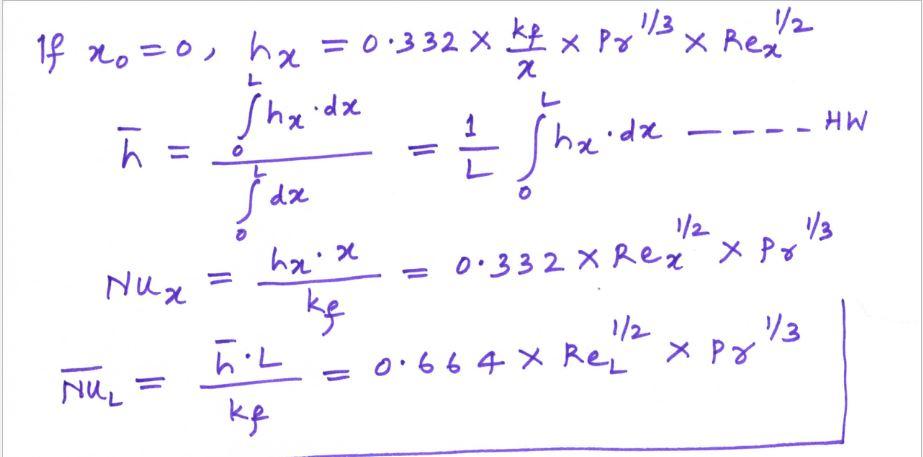 If x₀ = 0, hₓ = 0.332 × k_f/x × Pr^1/3 × Reₓ^1/2
h̄ = ∫₀ᴸ hₓ·dx / ∫₀ᴸ dx = 1/L ∫₀ᴸ hₓ·dx ---- HW
Nuₓ = hₓ·x / k_f = 0.332 × Reₓ^1/2 × Pr^1/3
N̅u̅_L = h̄·L / k_f = 0.664 × Re_L^1/2 × Pr^1/3